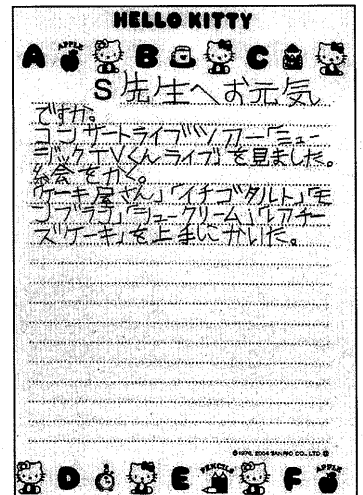 HELLO KITTY
A APPLE B C
S先生へお元気
ですか。
コンサートライブツアー「ミュー
ジックTVくんライブ」を見ました。
絵会をかく。
「ケーキ屋さん」「イチゴタルト」「モ
ンブラン」「シュークリーム」「レアチー
ズケーキ」を上手にかいた。
©1976, 2004 SANRIO CO., LTD.
D E PENCILS F APPLE